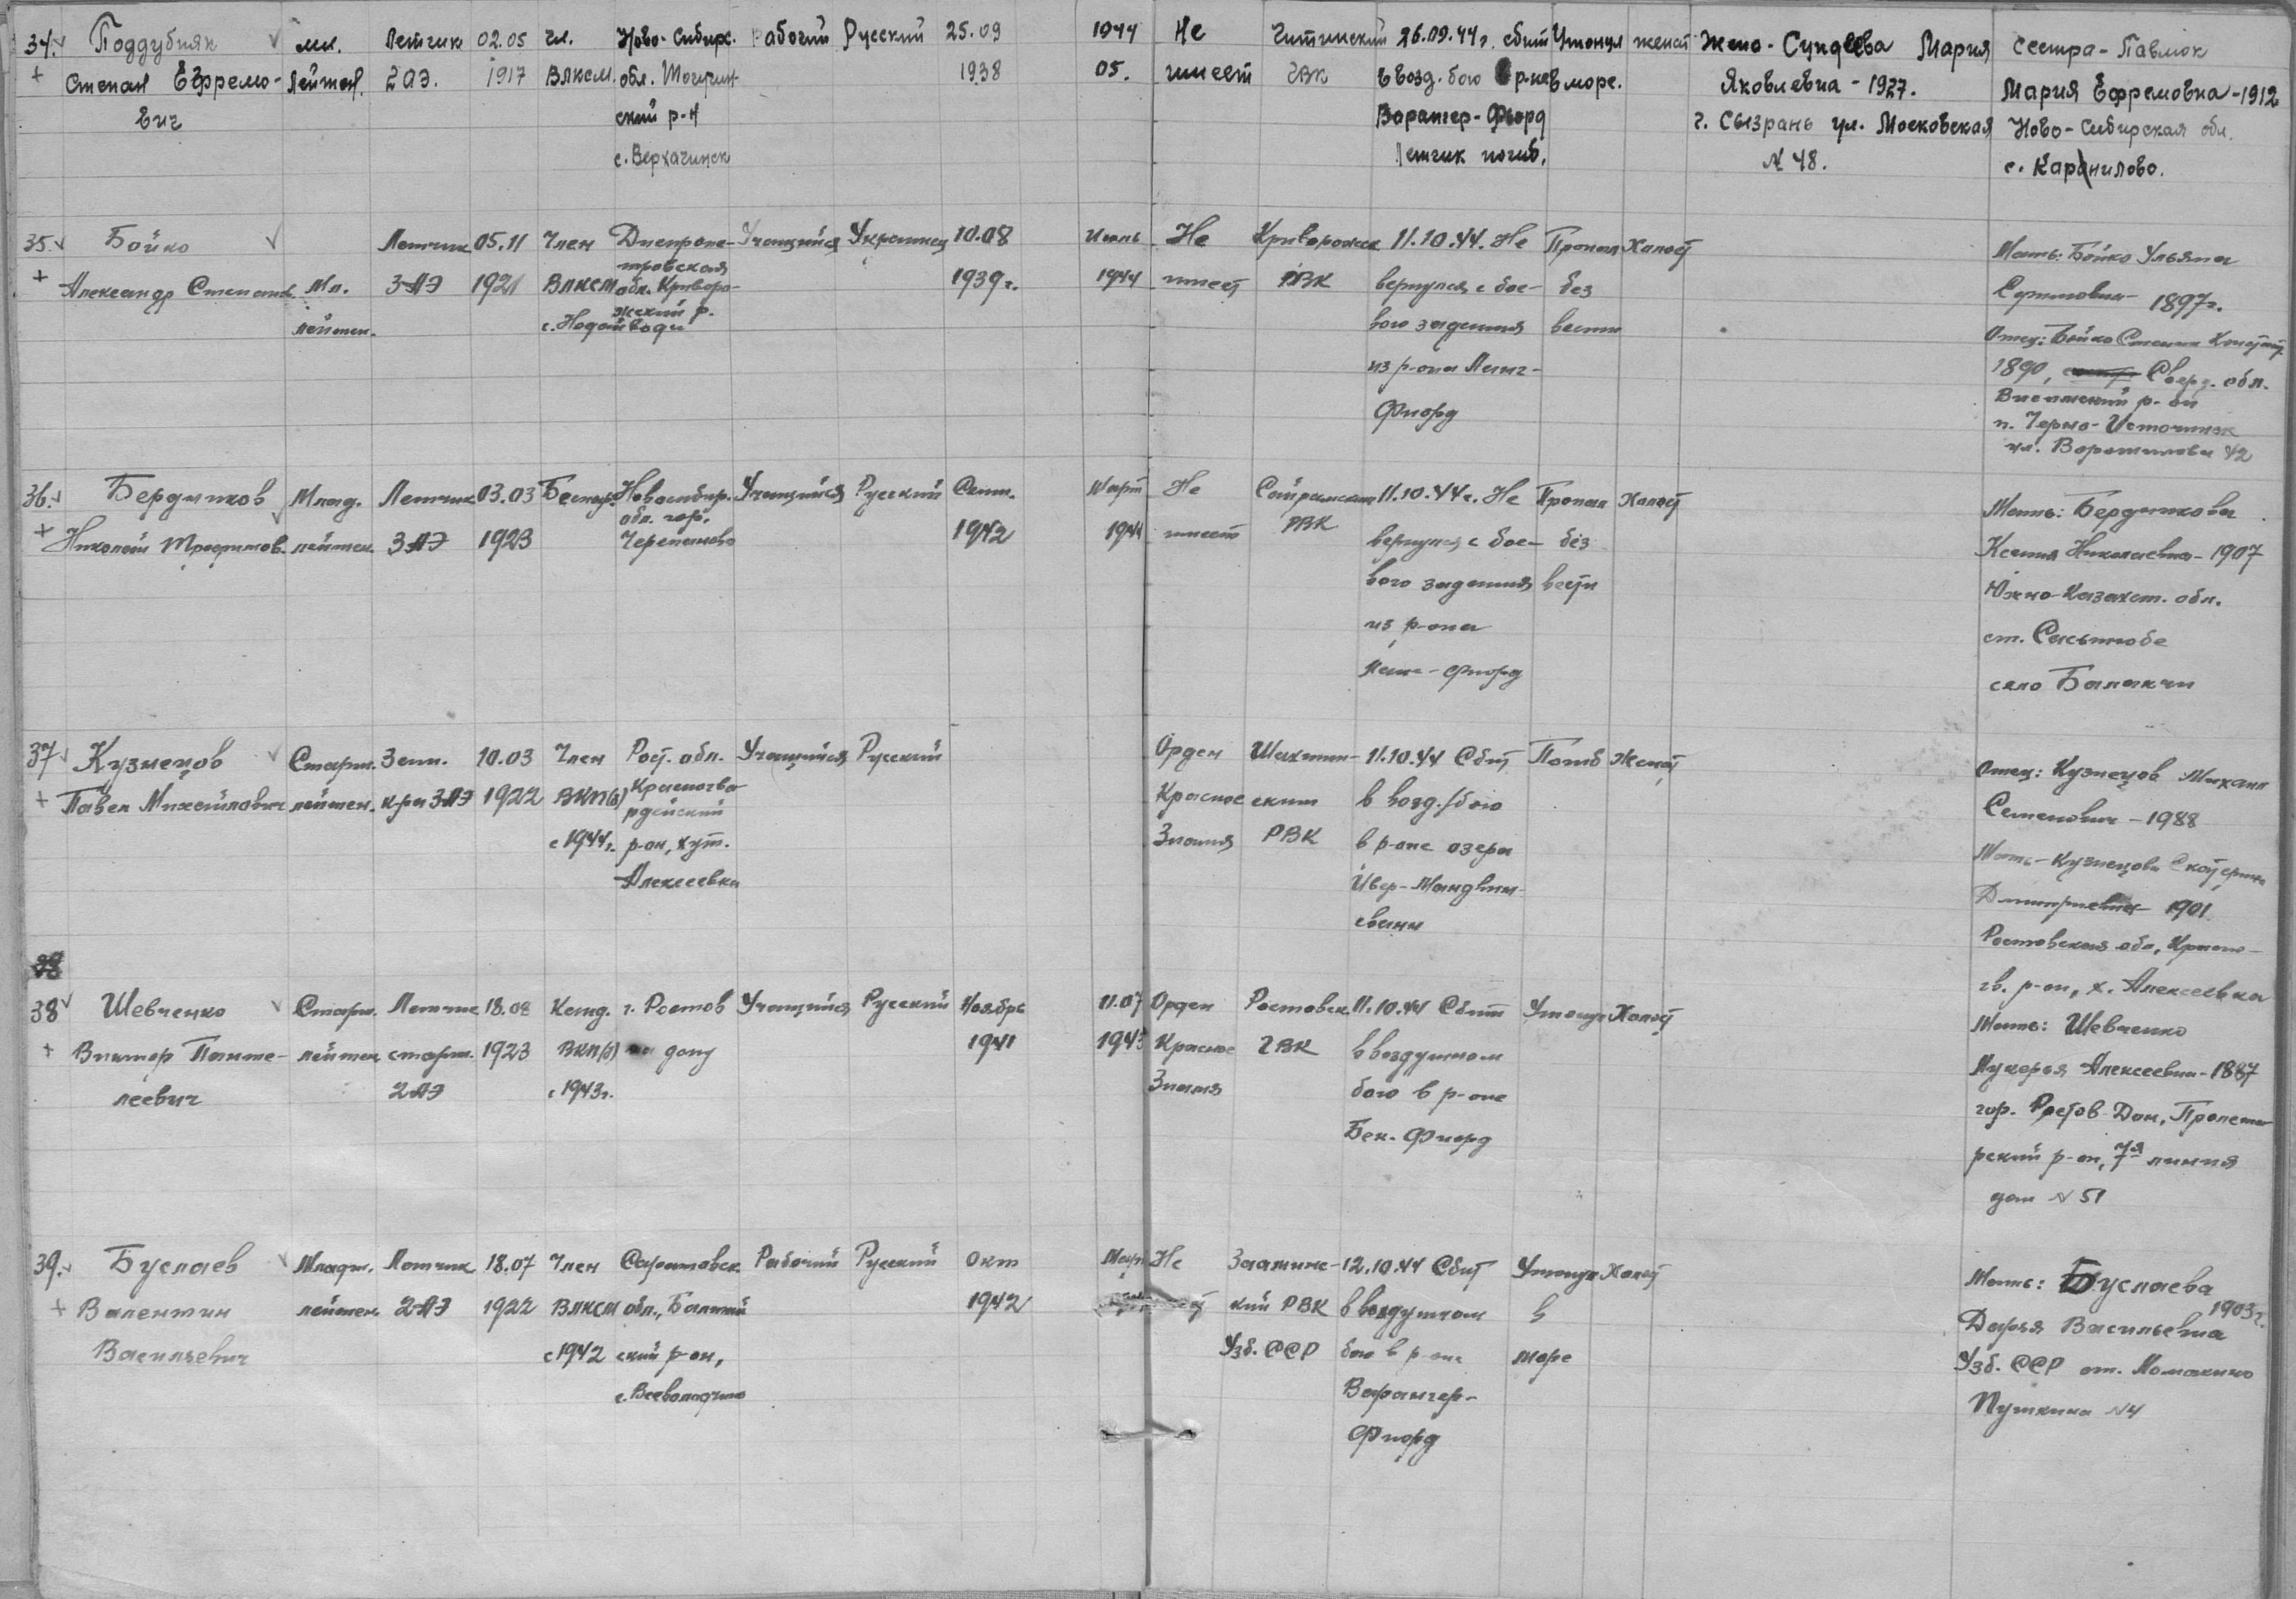 34. Поддубняк мл. Летчик 02.05 чл. Ново-Сибир. Рабочий Русский 25.09 1944 Не Читинский 26.09.44г. сбит Утонул женат Жена - Сундеева Мария Сестра - Павлюк
+ Степан Ефремо- лейтен. 2 АЭ. 1917 ВЛКСМ. обл. Тогучин- 1938 05. имеет ГВК в возд. бою р-не в море. Яковлевна - 1927. Мария Ефремовна - 1912
вич ский р-н Варангер-Фьорд г. Сызрань ул. Московская Ново-Сибирская обл.
с. Верхачинск Летчик погиб. N 48. с. Карнилово.
35. Бойко Летчик 05.11 Член Днепропе- Учащийся Украинец 10.08 Июль Не Криворожск 11.10.44. Не Пропал Холост Мать: Бойко Ульяна
тровская
+ Александр Степанов. Мл. 3 АЭ 1921 ВЛКСМ обл. Криворо- 1939 г. 1944 имеет РВК вернулся с бое- без 1897г.
лейтен. жский р. вого задания вести Отец: Бойко Степан
с. Недайводы
из р-она Ланг- 1890, Сверд. обл.
Фиорд Висимский р-он
п. Черно-Источинск
ул. Ворошилова 42
36. Бердников Млад. Летчик 03.03 Беспар. Новосибир. Учащийся Русский Сент. Март Не Сайрамский 11.10.44г. Не Пропал Холост Мать: Бердникова
обл. гор.
+ Николай Трофимов. лейтен. 3 АЭ 1923 Черепаново 1942 1944 имеет РВК вернулся с бое- без Ксения Николаевна - 1907
вого задания вести Южно-Казахст. обл.
из р-она ст.
Ланг-фиорд село Балакчи
37 Кузнецов Старш. Зам. 10.03 Член Рост. обл. Учащийся Русский Орден Шахтин- 11.10.44 Сбит Погиб Женат Отец: Кузнецов Михаил
+ Павел Михайлович лейтен. к-ра 3 АЭ 1922 ВКП(б) Красногва- Красное ским в возд. бою Семенович - 1988
рдейский
с 1944 г. р-он, хут. Знамя РВК в р-оне озера Мать - Кузнецова Екатерина
Алексеевка Дмитриевна - 1901
свани Ростовская обл., Красно-
38
гв. р-он, х. Алексеевка
38 Шевченко Старш. Летчик 18.08 Канд. г. Ростов Учащийся Русский Ноябрь 11.07 Орден Ростовск. 11.10.44 Сбит Утонул Холост Мать: Шевченко
+ Виктор Панте- лейтен старш. 1923 ВКП(б) на дону 1941 1943 Красное ГВК в воздушном Лукерья Алексеевна - 1887
леевич 2 АЭ с 1943г. Знамя бою в р-оне гор. Ростов-Дон, Пролета-
Бек. Фиорд рский р-он, 7я линия
дом N 51
39. Буслаев Младш. Летчик 18.07 Член Саратовск. Рабочий Русский Окт Март Не Зааминс- 12.10.44 Сбит Утонул Холост Мать: Буслаева
+ Валентин лейтен. 2 АЭ 1922 ВЛКСМ обл., 1942 кий РВК в воздушном в 1903 г.
Васильевич с 1942 ский р-он, Узб. ССР бою в р-оне море Дарья Васильевна
с. Всеволодчино Варангер- Узб. ССР ст. Ломакино
Фиорд Пушкина N 4